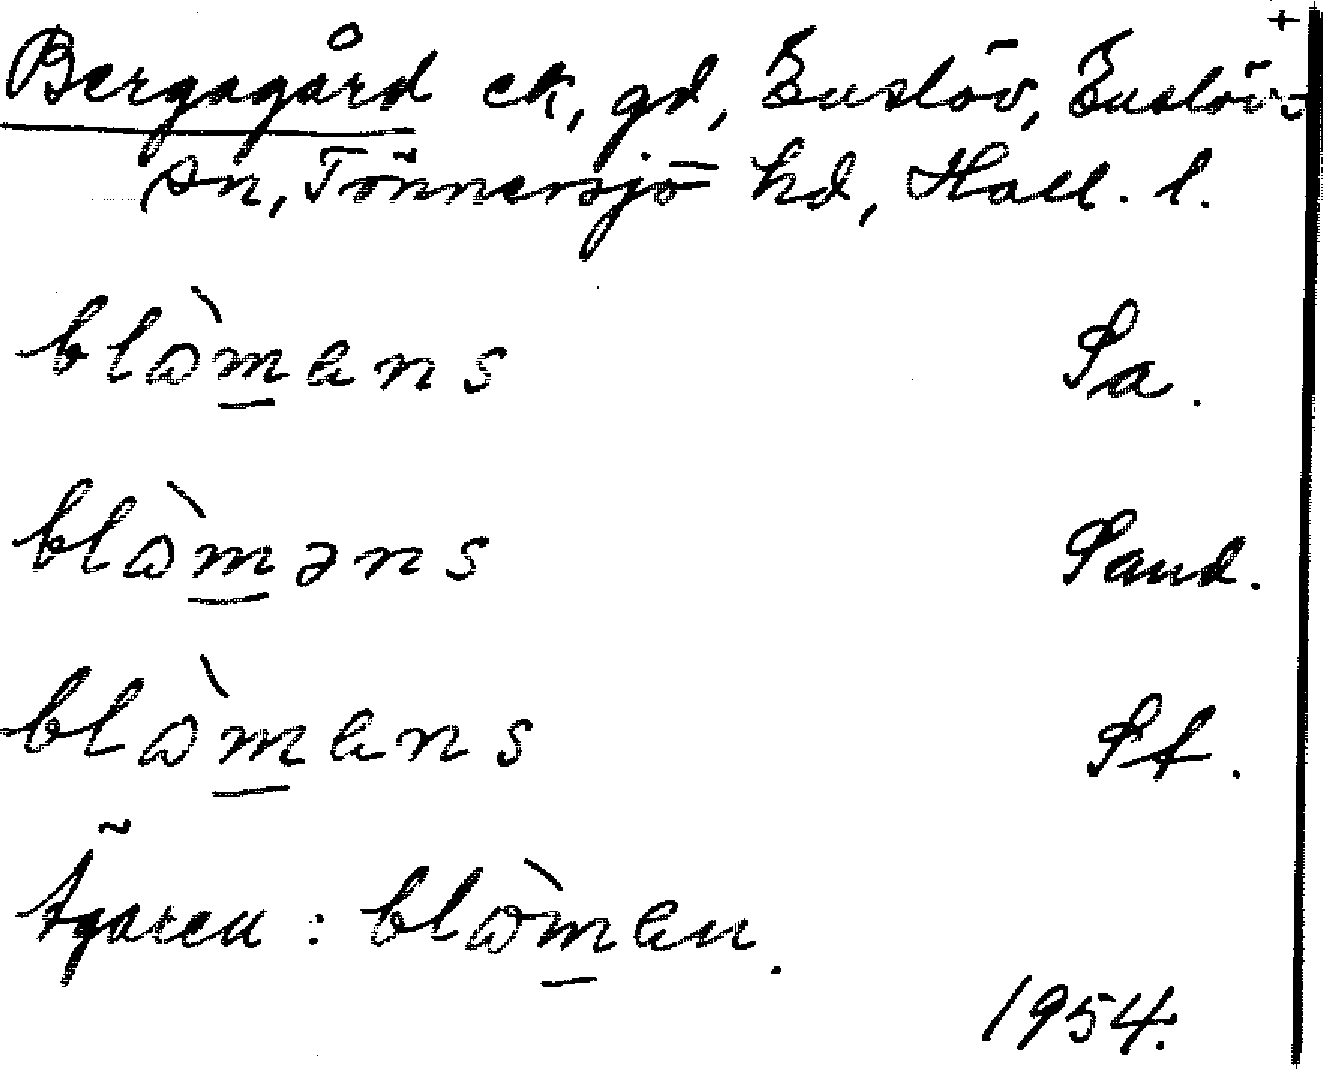 +
Bergagård ek, gd, Enslöv, Enslövs
sn, Tönnersjö hd, Hall. l.
blòmans Sa.
blòməns Sand.
blòmans St.
Ägaren: blòman.
1954.